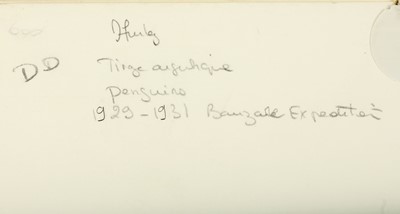 Hurley
DD Tirage argentique
penguins
1929-1931 Banzare Expedition